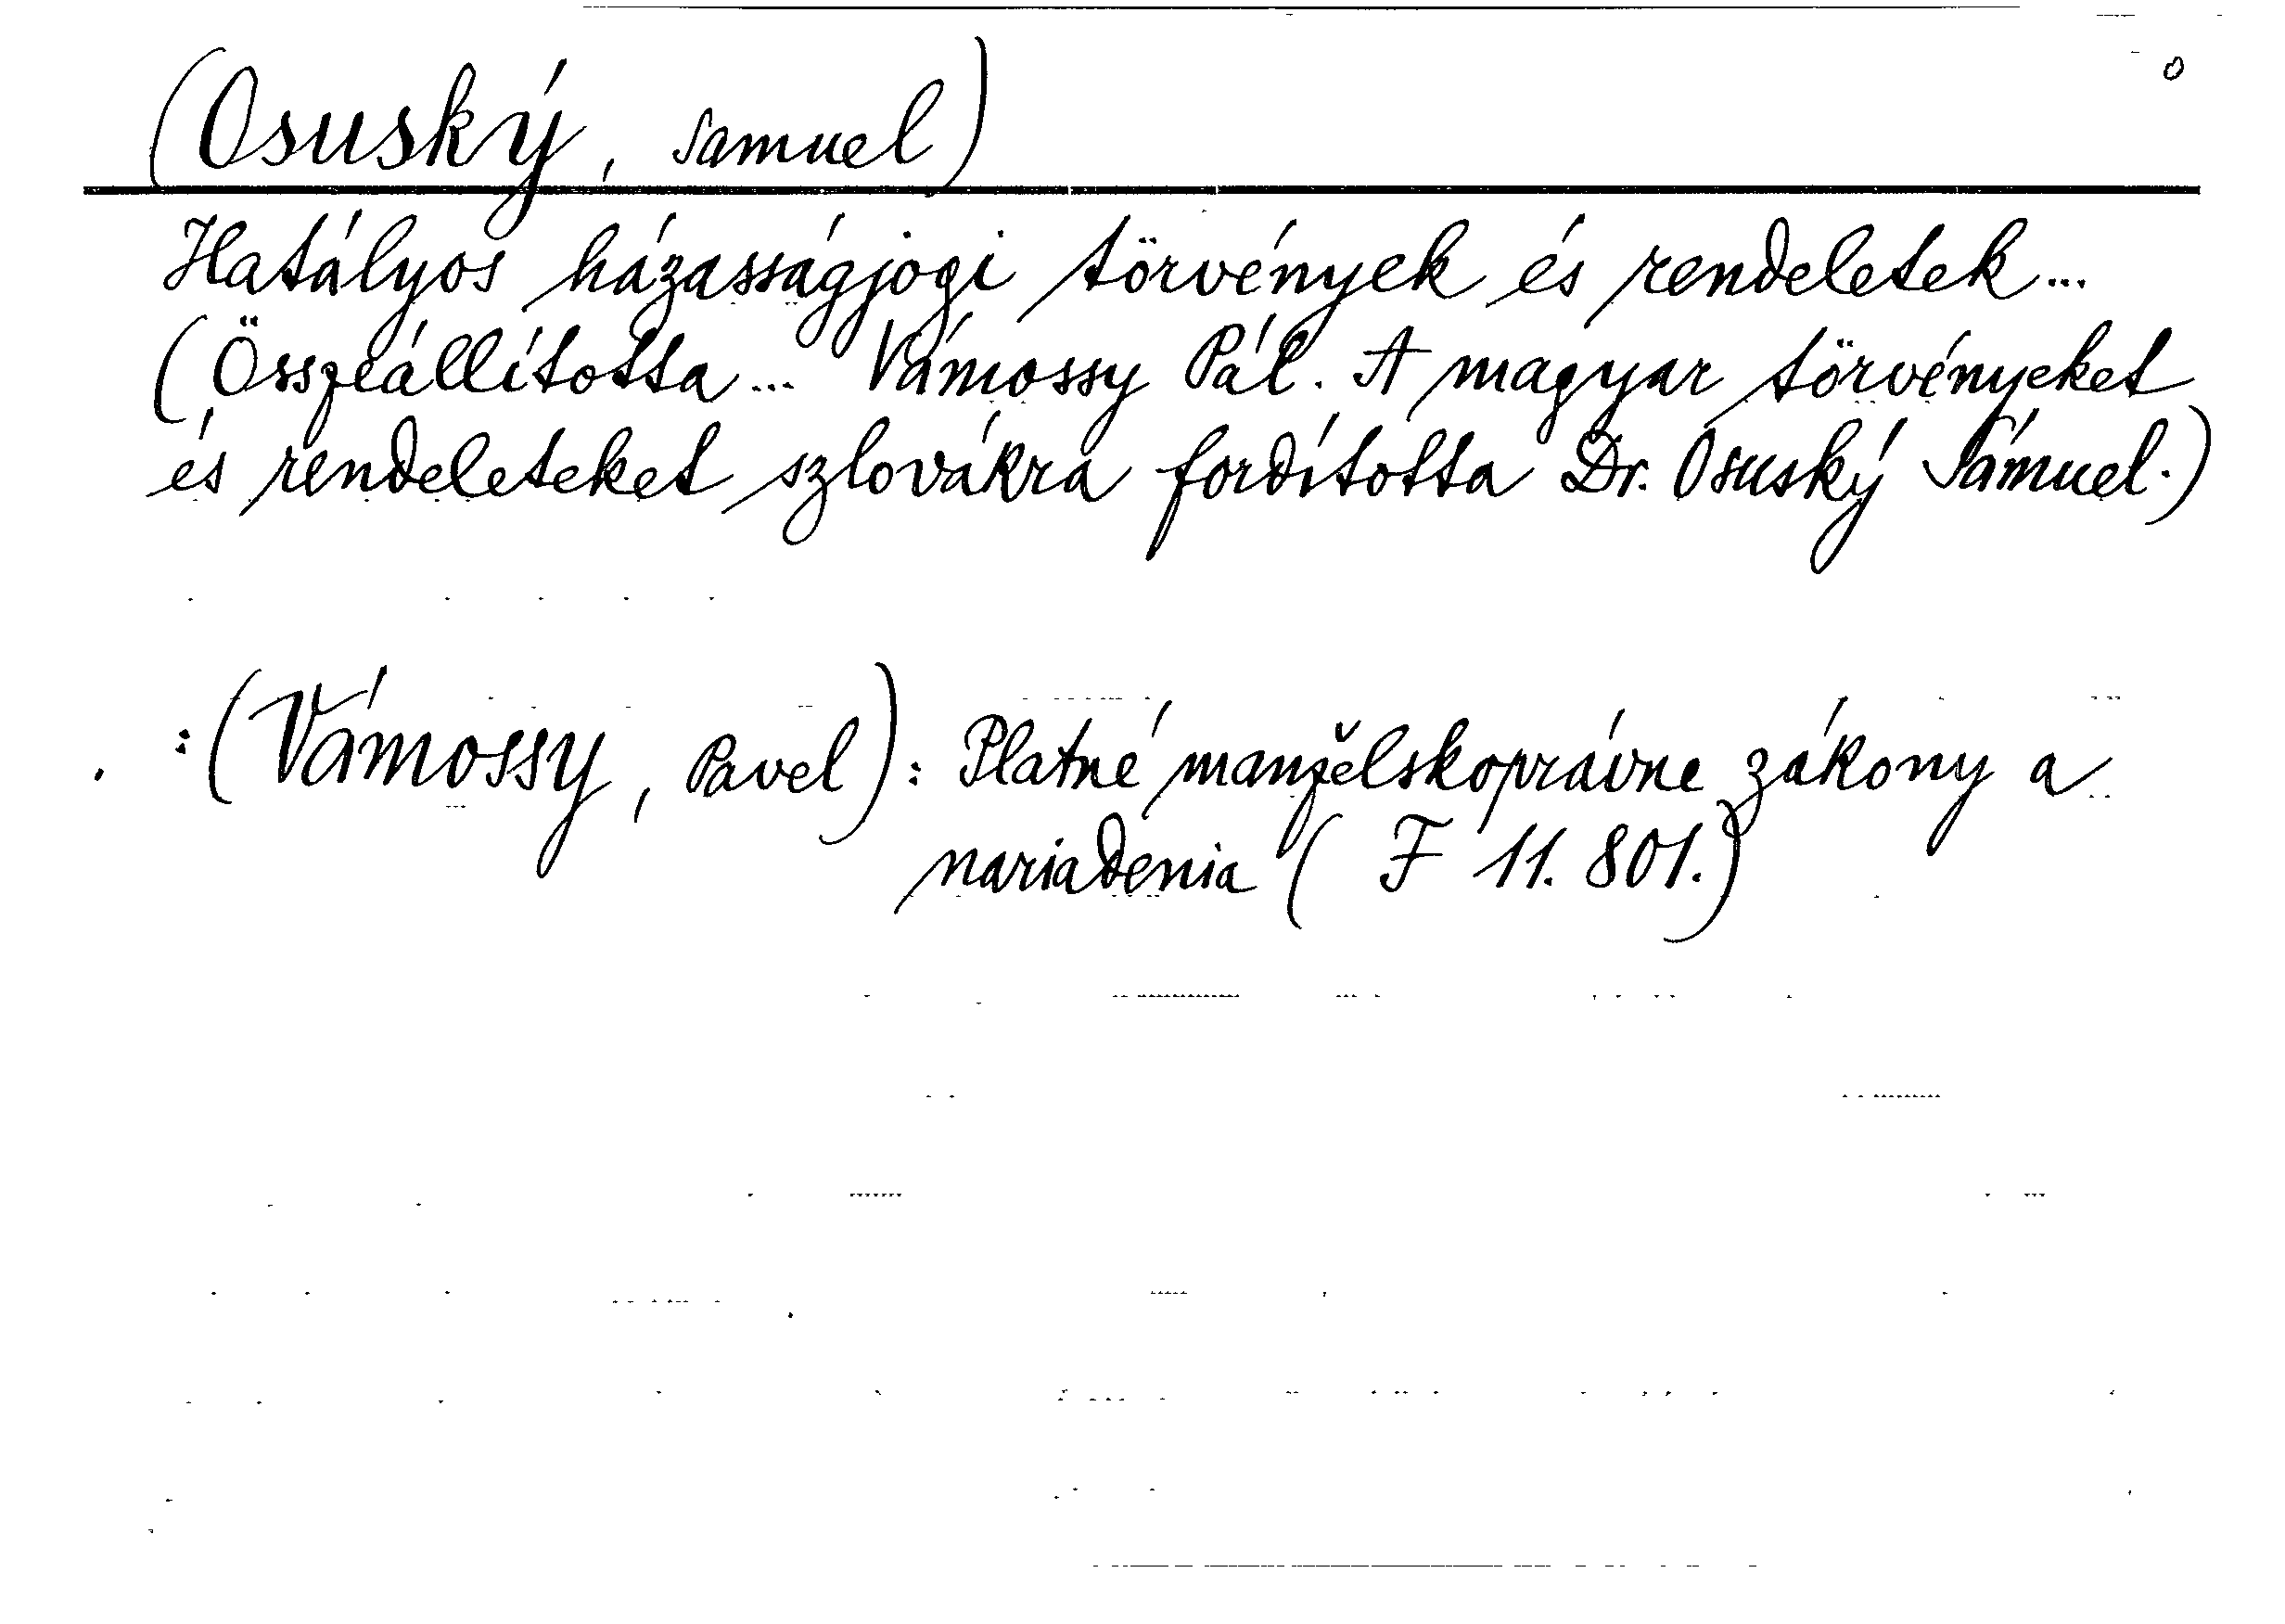 (Osuský, Samuel)
Hatályos házasságjogi törvények és rendeletek...
(Összeállította... Vámossy Pál. A magyar törvényeket
és rendeleteket szlovákra fordította Dr. Osuský Sámuel.)
:(Vámossy, Pavel): Platné manželskoprávne zákony a
nariadenia ( F 11. 801.)